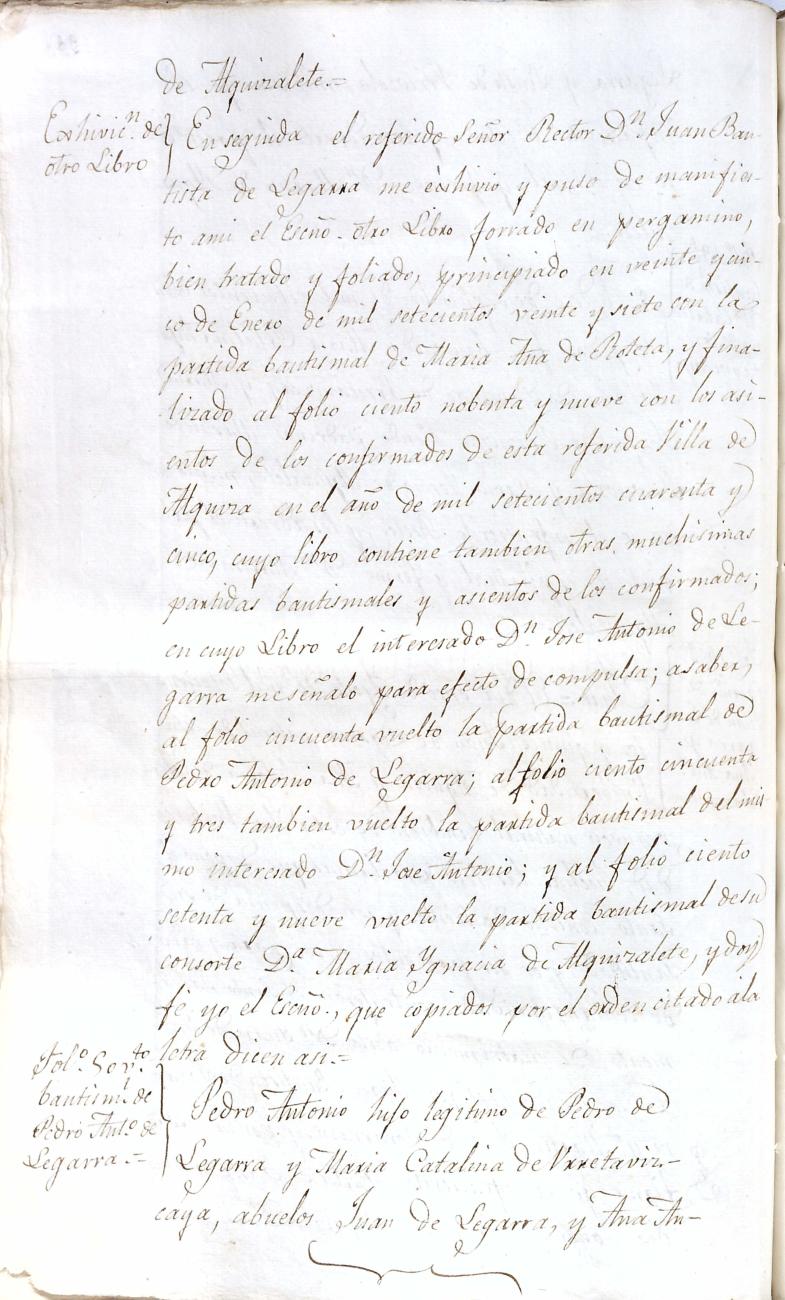 de Alquizalete.=
Exhivic.n de
otro Libro
En seguida el referido Señor Rector D.n Juan Bau-
tista de Legarra me èxhivio y puso de manifies-
to ami el Escnō. otro Libro forrado en pergamino,
bien tratado y foliado, principiado en veinte y cin-
co de Enero de mil setecientos veinte y siete con la
partida bautismal de Maria Ana de Roteta, y fina-
lizado al folio ciento nobenta y nueve con los asi-
entos de los confirmados de esta referida Villa de
Alquiza en el año de mil setecientos cuarenta y
cinco, cuyo libro contiene tambien otras muchisimas
partidas bautismales y asientos de los confirmados;
en cuyo Libro el interesado D.n Jose Antonio de Le-
garra me señalo para efecto de compulsa; a saber,
al folio cincuenta vuelto la partida bautismal de
Pedro Antonio de Legarra; al folio ciento cincuenta
y tres tambien vuelto la partida bautismal del mis
mo interesado D.n Jose Antonio; y al folio ciento
setenta y nueve vuelto la partida bautismal de su
consorte D.a Maria Ygnacia de Alquizalete, y doy
fé yo el Escnō., que copiados por el orden citado àla
letra dicen asi.=
Fol.o 50 v.to
bautism.l de
Pedro Ant.o de
Legarra.=
Pedro Antonio hijo legitimo de Pedro de
Legarra y Maria Catalina de Vrretaviz-
caya, abuelos Juan de Legarra, y Ana An-